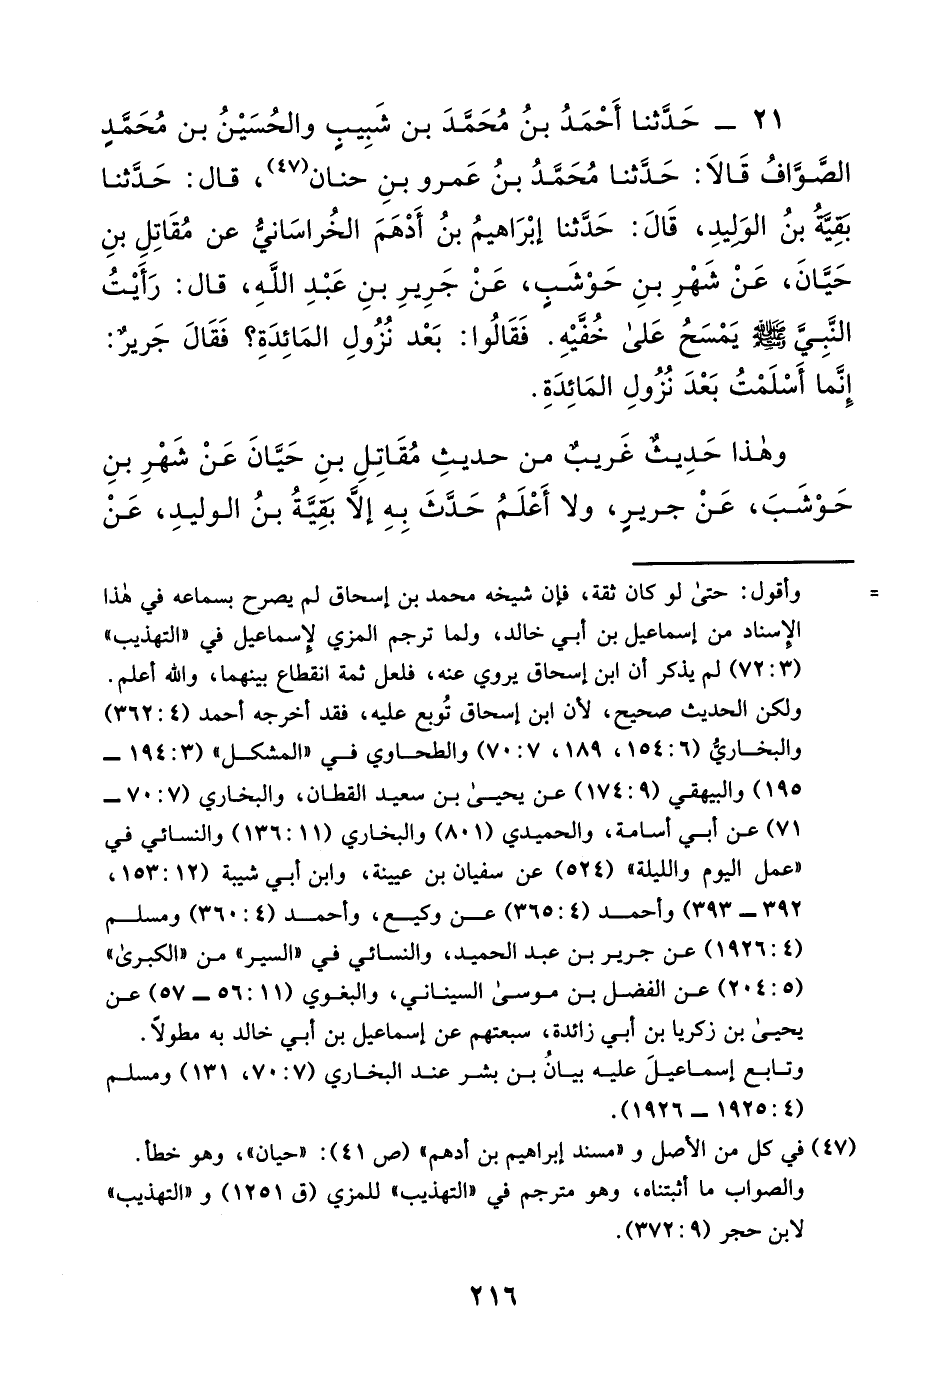 ٢١ ـ حَدَّثنا أَحْمَدُ بنُ مُحَمَّدَ بن شَبِيبٍ والحُسَيْنُ بن مُحَمَّدٍ
الصَّوَّافُ قَالاَ: حَدَّثنا مُحَمَّدُ بنُ عَمرو بنِ حنان(٤٧)، قال: حَدَّثنا
بَقِيَّةُ بنُ الوَلِيدِ، قَالَ: حَدَّثنا إبْرَاهيمُ بنُ أَدْهَمَ الخُراسَانيُّ عن مُقَاتِلِ بنِ
حَيَّانَ، عَنْ شَهْرِ بنِ حَوْشَبٍ، عَنْ جَرِيرِ بنِ عَبْدِ اللَّهِ، قال: رَأَيْتُ
النَّبِيَّ ﷺ يَمْسَحُ عَلىٰ خُفَّيْهِ. فَقَالُوا: بَعْد نُزُولِ المَائِدَةِ؟ فَقَالَ جَريرٌ:
إنَّما أَسْلَمْتُ بَعْدَ نُزُولِ المَائِدَةِ.
وهٰذا حَدِيثٌ غَرِيبٌ من حديثِ مُقَاتِلِ بنِ حَيَّانَ عَنْ شَهْرِ بنِ
حَوْشَبَ، عَنْ جريرٍ، ولا أَعْلَمُ حَدَّثَ بِهِ إلاَّ بَقِيَّةُ بنُ الوليدِ، عَنْ
= وأقول: حتىٰ لو كان ثقة، فإن شيخه محمد بن إسحاق لم يصرح بسماعه في هٰذا
الإسناد من إسماعيل بن أبي خالد، ولما ترجم المزي لإسماعيل في «التهذيب»
(٣: ٧٢) لم يذكر أن ابن إسحاق يروي عنه، فلعل ثمة انقطاع بينهما، والله أعلم.
ولكن الحديث صحيح، لأن ابن إسحاق تُوبع عليه، فقد أخرجه أحمد (٤: ٣٦٢)
والبخاريُّ (٦: ١٥٤، ١٨٩، ٧: ٧٠) والطحاوي فـي «المشكل» (٣: ١٩٤ ـ
١٩٥) والبيهقي (٩: ١٧٤) عن يحيىٰ بن سعيد القطان، والبخاري (٧: ٧٠ ـ
٧١) عن أبي أسامة، والحميدي (٨٠١) والبخاري (١١: ١٣٦) والنسائي في
«عمل اليوم والليلة» (٥٢٤) عن سفيان بن عيينة، وابن أبي شيبة (١٢: ١٥٣،
٣٩٢ ـ ٣٩٣) وأحمد (٤: ٣٦٥) عن وكيع، وأحمد (٤: ٣٦٠) ومسلم
(٤: ١٩٢٦) عن جرير بن عبد الحميد، والنسائي في «السير» من «الكبرىٰ»
(٥: ٢٠٤) عن الفضل بن موسىٰ السيناني، والبغوي (١١: ٥٦ ـ ٥٧) عن
يحيىٰ بن زكريا بن أبي زائدة، سبعتهم عن إسماعيل بن أبي خالد به مطولاً.
وتابع إسماعيلَ عليه بيانُ بن بشر عند البخاري (٧: ٧٠، ١٣١) ومسلم
(٤: ١٩٢٥ ـ ١٩٢٦).
(٤٧) في كل من الأصل و «مسند إبراهيم بن أدهم» (ص ٤١): «حيان»، وهو خطأ.
والصواب ما أثبتناه، وهو مترجم في «التهذيب» للمزي (ق ١٢٥١) و «التهذيب»
لابن حجر (٩: ٣٧٢).
٢١٦